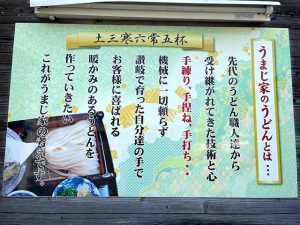 土三寒六常五杯
うまじ家のうどんとは…
先代のうどん職人達から
受け継がれてきた技術と心
手練り、手捏ね、手打ち・・
機械に一切頼らず
讃岐で育った自分達の手で
お客様に喜ばれる
暖かみのあるうどんを
作っていきたい
これがうまじ家の
です。